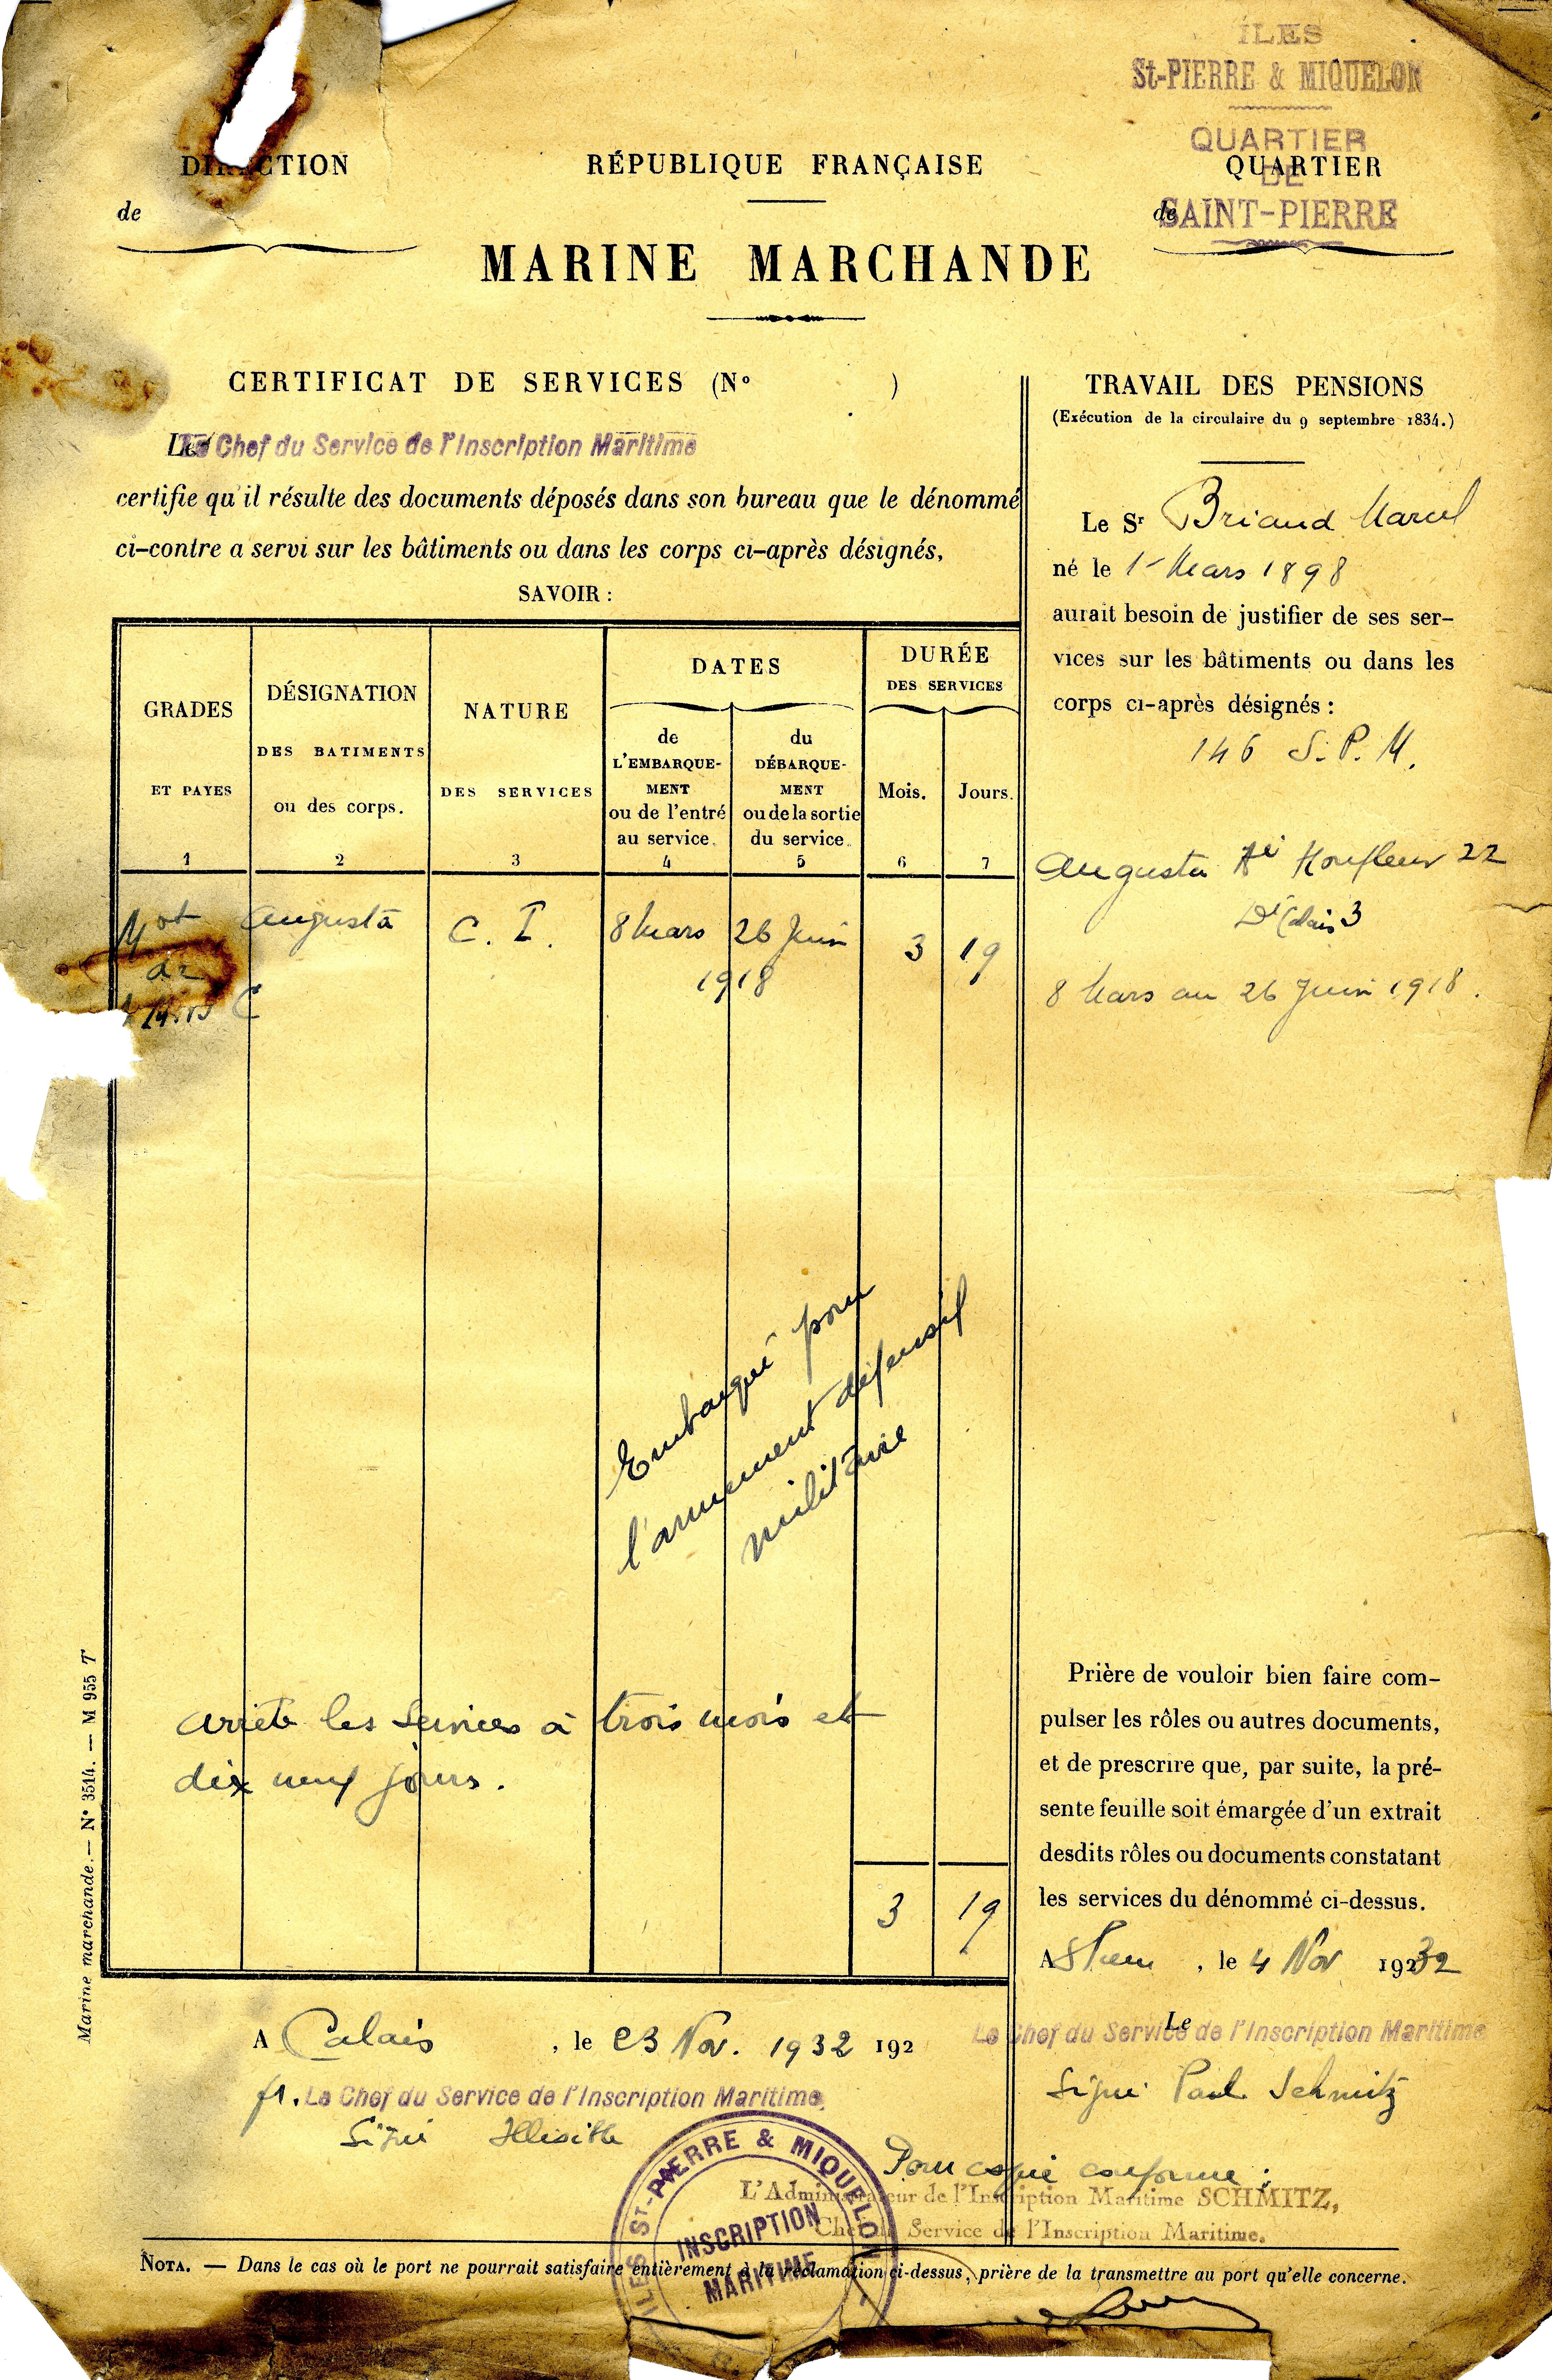 ÎLES
St-PIERRE & MIQUELON
QUARTIER
DE
SAINT-PIERRE
DIRECTION
de
RÉPUBLIQUE FRANÇAISE
QUARTIER
de
MARINE MARCHANDE
CERTIFICAT DE SERVICES (N° )
Le Chef du Service de l'Inscription Maritime
certifie qu'il résulte des documents déposés dans son bureau que le dénommé
ci-contre a servi sur les bâtiments ou dans les corps ci-après désignés,
SAVOIR :
GRADES
ET PAYES
1
DÉSIGNATION
DES BATIMENTS
ou des corps.
2
NATURE
DES SERVICES
3
DATES
de
L'EMBARQUE-
MENT
ou de l'entré
au service.
4
du
DÉBARQUE-
MENT
ou de la sortie
du service.
5
DURÉE
DES SERVICES
Mois.
6
Jours.
7
Mot Augusta C. I. 8 Mars 26 Juin 3 19
de 1918
C
Embarqué pour
l'armement défensif
militaire
Arrête les services à trois mois et
dix neuf jours.
3 19
A Calais, le 23 Nov. 1932 192
Le Chef du Service de l'Inscription Maritime.
Signé Illisible
TRAVAIL DES PENSIONS
(Exécution de la circulaire du 9 septembre 1834.)
Le Sr Briaud Marcel
né le 1er Mars 1898
aurait besoin de justifier de ses ser-
vices sur les bâtiments ou dans les
corps ci-après désignés :
146 S. P. M.
Augusta Aé Honfleur 22
Dé Calais 3
8 Mars au 26 Juin 1918.
Prière de vouloir bien faire com-
pulser les rôles ou autres documents,
et de prescrire que, par suite, la pré-
sente feuille soit émargée d'un extrait
desdits rôles ou documents constatant
les services du dénommé ci-dessus.
A St Pierre, le 4 Nov 1932
Le
Le Chef du Service de l'Inscription Maritime
Signé Paul Schmitz
Pour copie conforme :
L'Administrateur de l'Inscription Maritime SCHMITZ,
Chef du Service de l'Inscription Maritime.
ILES St-PIERRE & MIQUELON
INSCRIPTION
MARITIME
NOTA. — Dans le cas où le port ne pourrait satisfaire entièrement à la réclamation ci-dessus, prière de la transmettre au port qu'elle concerne.
Marine marchande. — N° 3514. — M 955 T